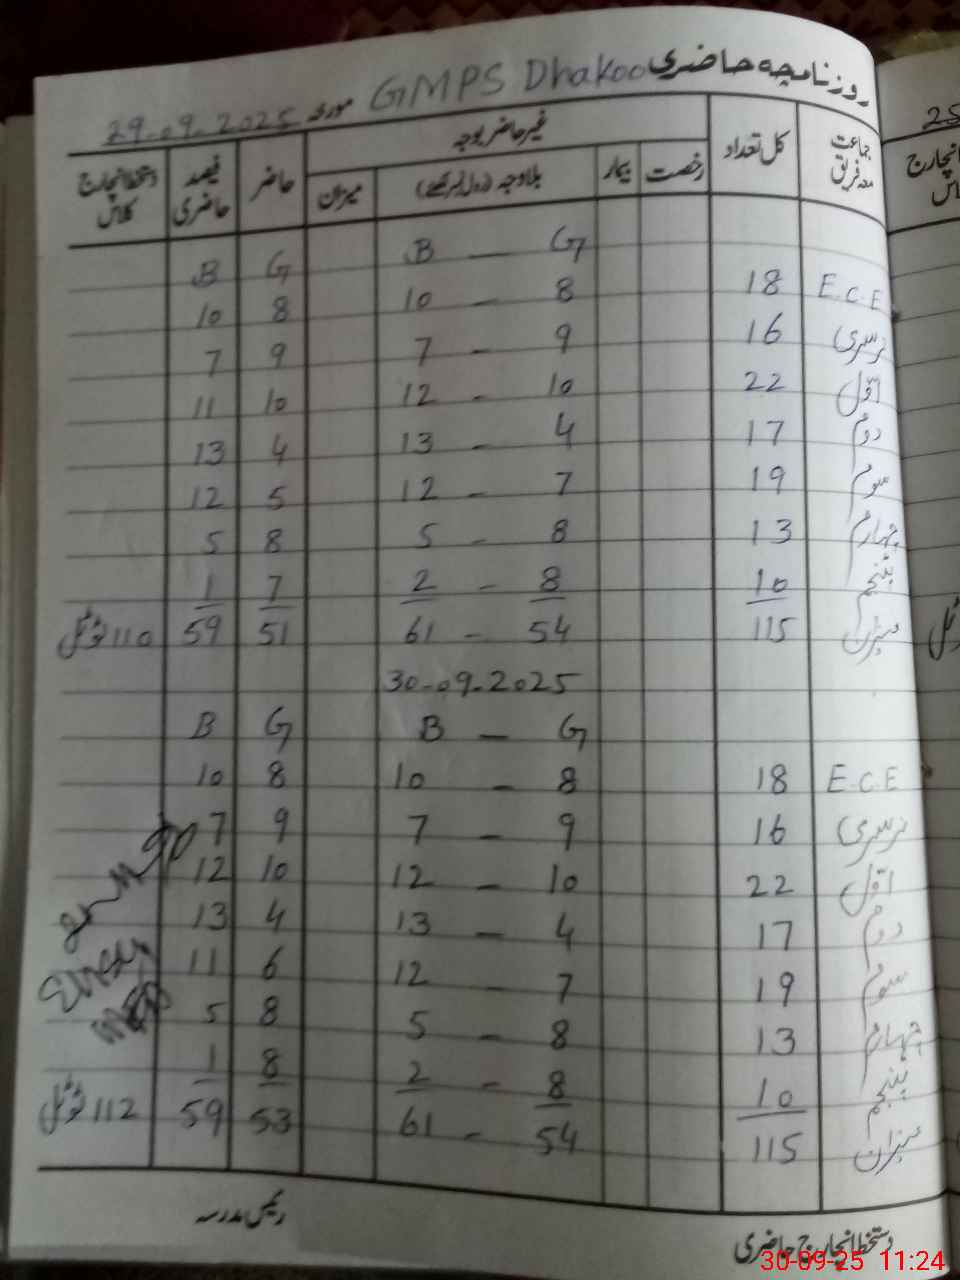 روزنامچہ حاضری GMPS Dhakoo مورخہ 29-09-2025
جماعت معہ فریق کل تعداد غیر حاضر بوجہ حاضر فیصد حاضری دستخط انچارج کلاس
رخصت بیمار بلاوجہ (رول نمبر لکھئے) میزان
G — B G B
E.C.E 18 8 — 10 8 10
نرسری 16 9 — 7 9 7
اوّل 22 10 - 12 10 11
دوم 17 4 - 13 4 13
سوم 19 7 - 12 5 12
چہارم 13 8 - 5 8 5
پنجم 10 8 - 2 7 1
میزان 115 54 - 61 51 59 110 ٹوٹل
30-09-2025
G — B G B
E.C.E 18 8 — 10 8 10
نرسری 16 9 — 7 9 7
اوّل 22 10 — 12 10 12
دوم 17 4 — 13 4 13
سوم 19 7 — 12 6 11
چہارم 13 8 - 5 8 5
پنجم 10 8 - 2 8 1
میزان 115 54 - 61 53 59 112 ٹوٹل
دستخط انچارج حاضری رئیس مدرسہ
30-09-25 11:24